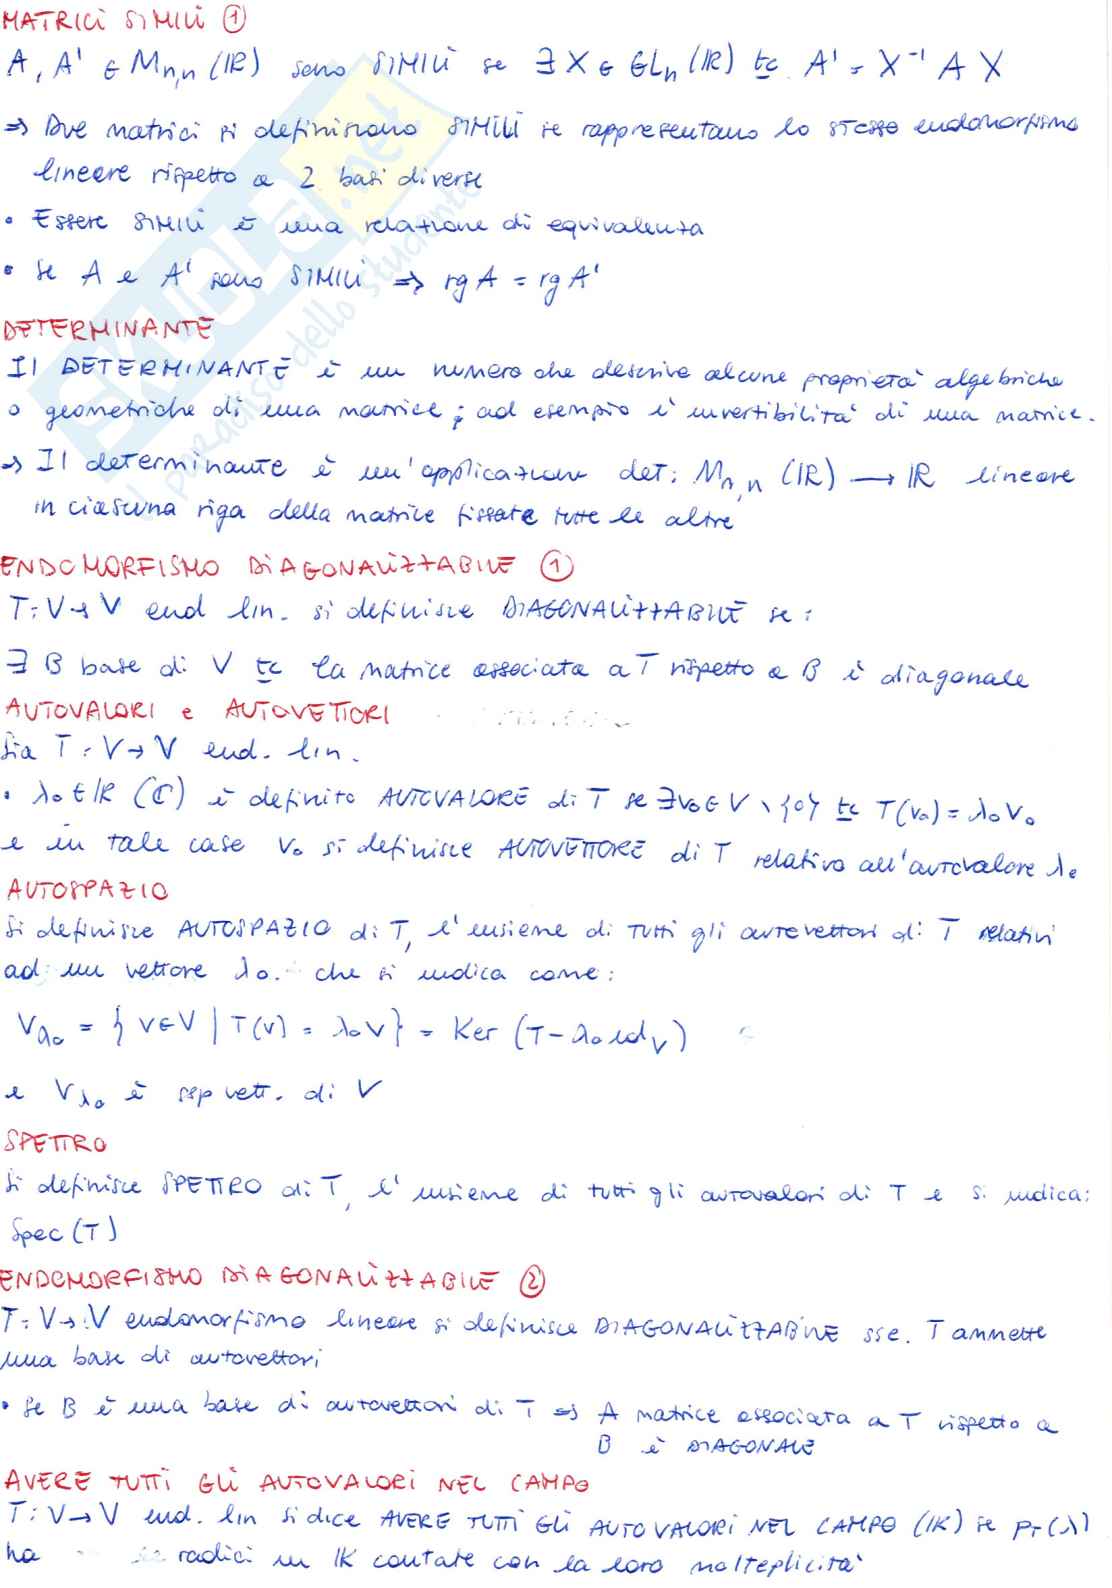 MATRICI SIMILI ①
A, A' ∈ Mn,n (IR) sono SIMILI se ∃ X ∈ GLn (IR) tc A' = X⁻¹ A X
⇒ Due matrici si definiscono SIMILI se rappresentano lo stesso endomorfismo
lineare rispetto a 2 basi diverse
• Essere SIMILI è una relazione di equivalenza
• Se A e A' sono SIMILI ⇒ rg A = rg A'
DETERMINANTE
Il DETERMINANTE è un numero che descrive alcune proprietà algebriche
o geometriche di una matrice; ad esempio l'invertibilità di una matrice.
⇒ Il determinante è un'applicazione det: Mn,n (IR) → IR lineare
in ciascuna riga della matrice fissate tutte le altre
ENDOMORFISMO DIAGONALIZZABILE ①
T: V→V end lin. si definisce DIAGONALIZZABILE se:
∃ B base di V tc la matrice associata a T rispetto a B è diagonale
AUTOVALORI e AUTOVETTORI
Sia T: V→V end. lin.
• λ₀ ∈ IR (C) è definito AUTOVALORE di T se ∃v₀ ∈ V \ {0} tc T(v₀) = λ₀v₀
e in tale caso v₀ si definisce AUTOVETTORE di T relativo all'autovalore λ₀
AUTOSPAZIO
Si definisce AUTOSPAZIO di T, l'insieme di tutti gli autovettori di T relativi
ad un vettore λ₀. che si indica come:
Vλ₀ = { v∈V | T(v) = λ₀v } = Ker (T-λ₀ idV)
e Vλ₀ è ssp vett. di V
SPETTRO
Si definisce SPETTRO di T, l'insieme di tutti gli autovalori di T e si indica:
Spec (T)
ENDOMORFISMO DIAGONALIZZABILE ②
T: V→V endomorfismo lineare si definisce DIAGONALIZZABILE sse. T ammette
una base di autovettori
• Se B è una base di autovettori di T ⇒ A matrice associata a T rispetto a
B è DIAGONALE
AVERE TUTTI GLI AUTOVALORI NEL CAMPO
T: V→V end. lin si dice AVERE TUTTI GLI AUTOVALORI NEL CAMPO (IK) se pT(λ)
ha radici in IK contate con la loro molteplicità
SKUOLA.net
il paradiso dello studente